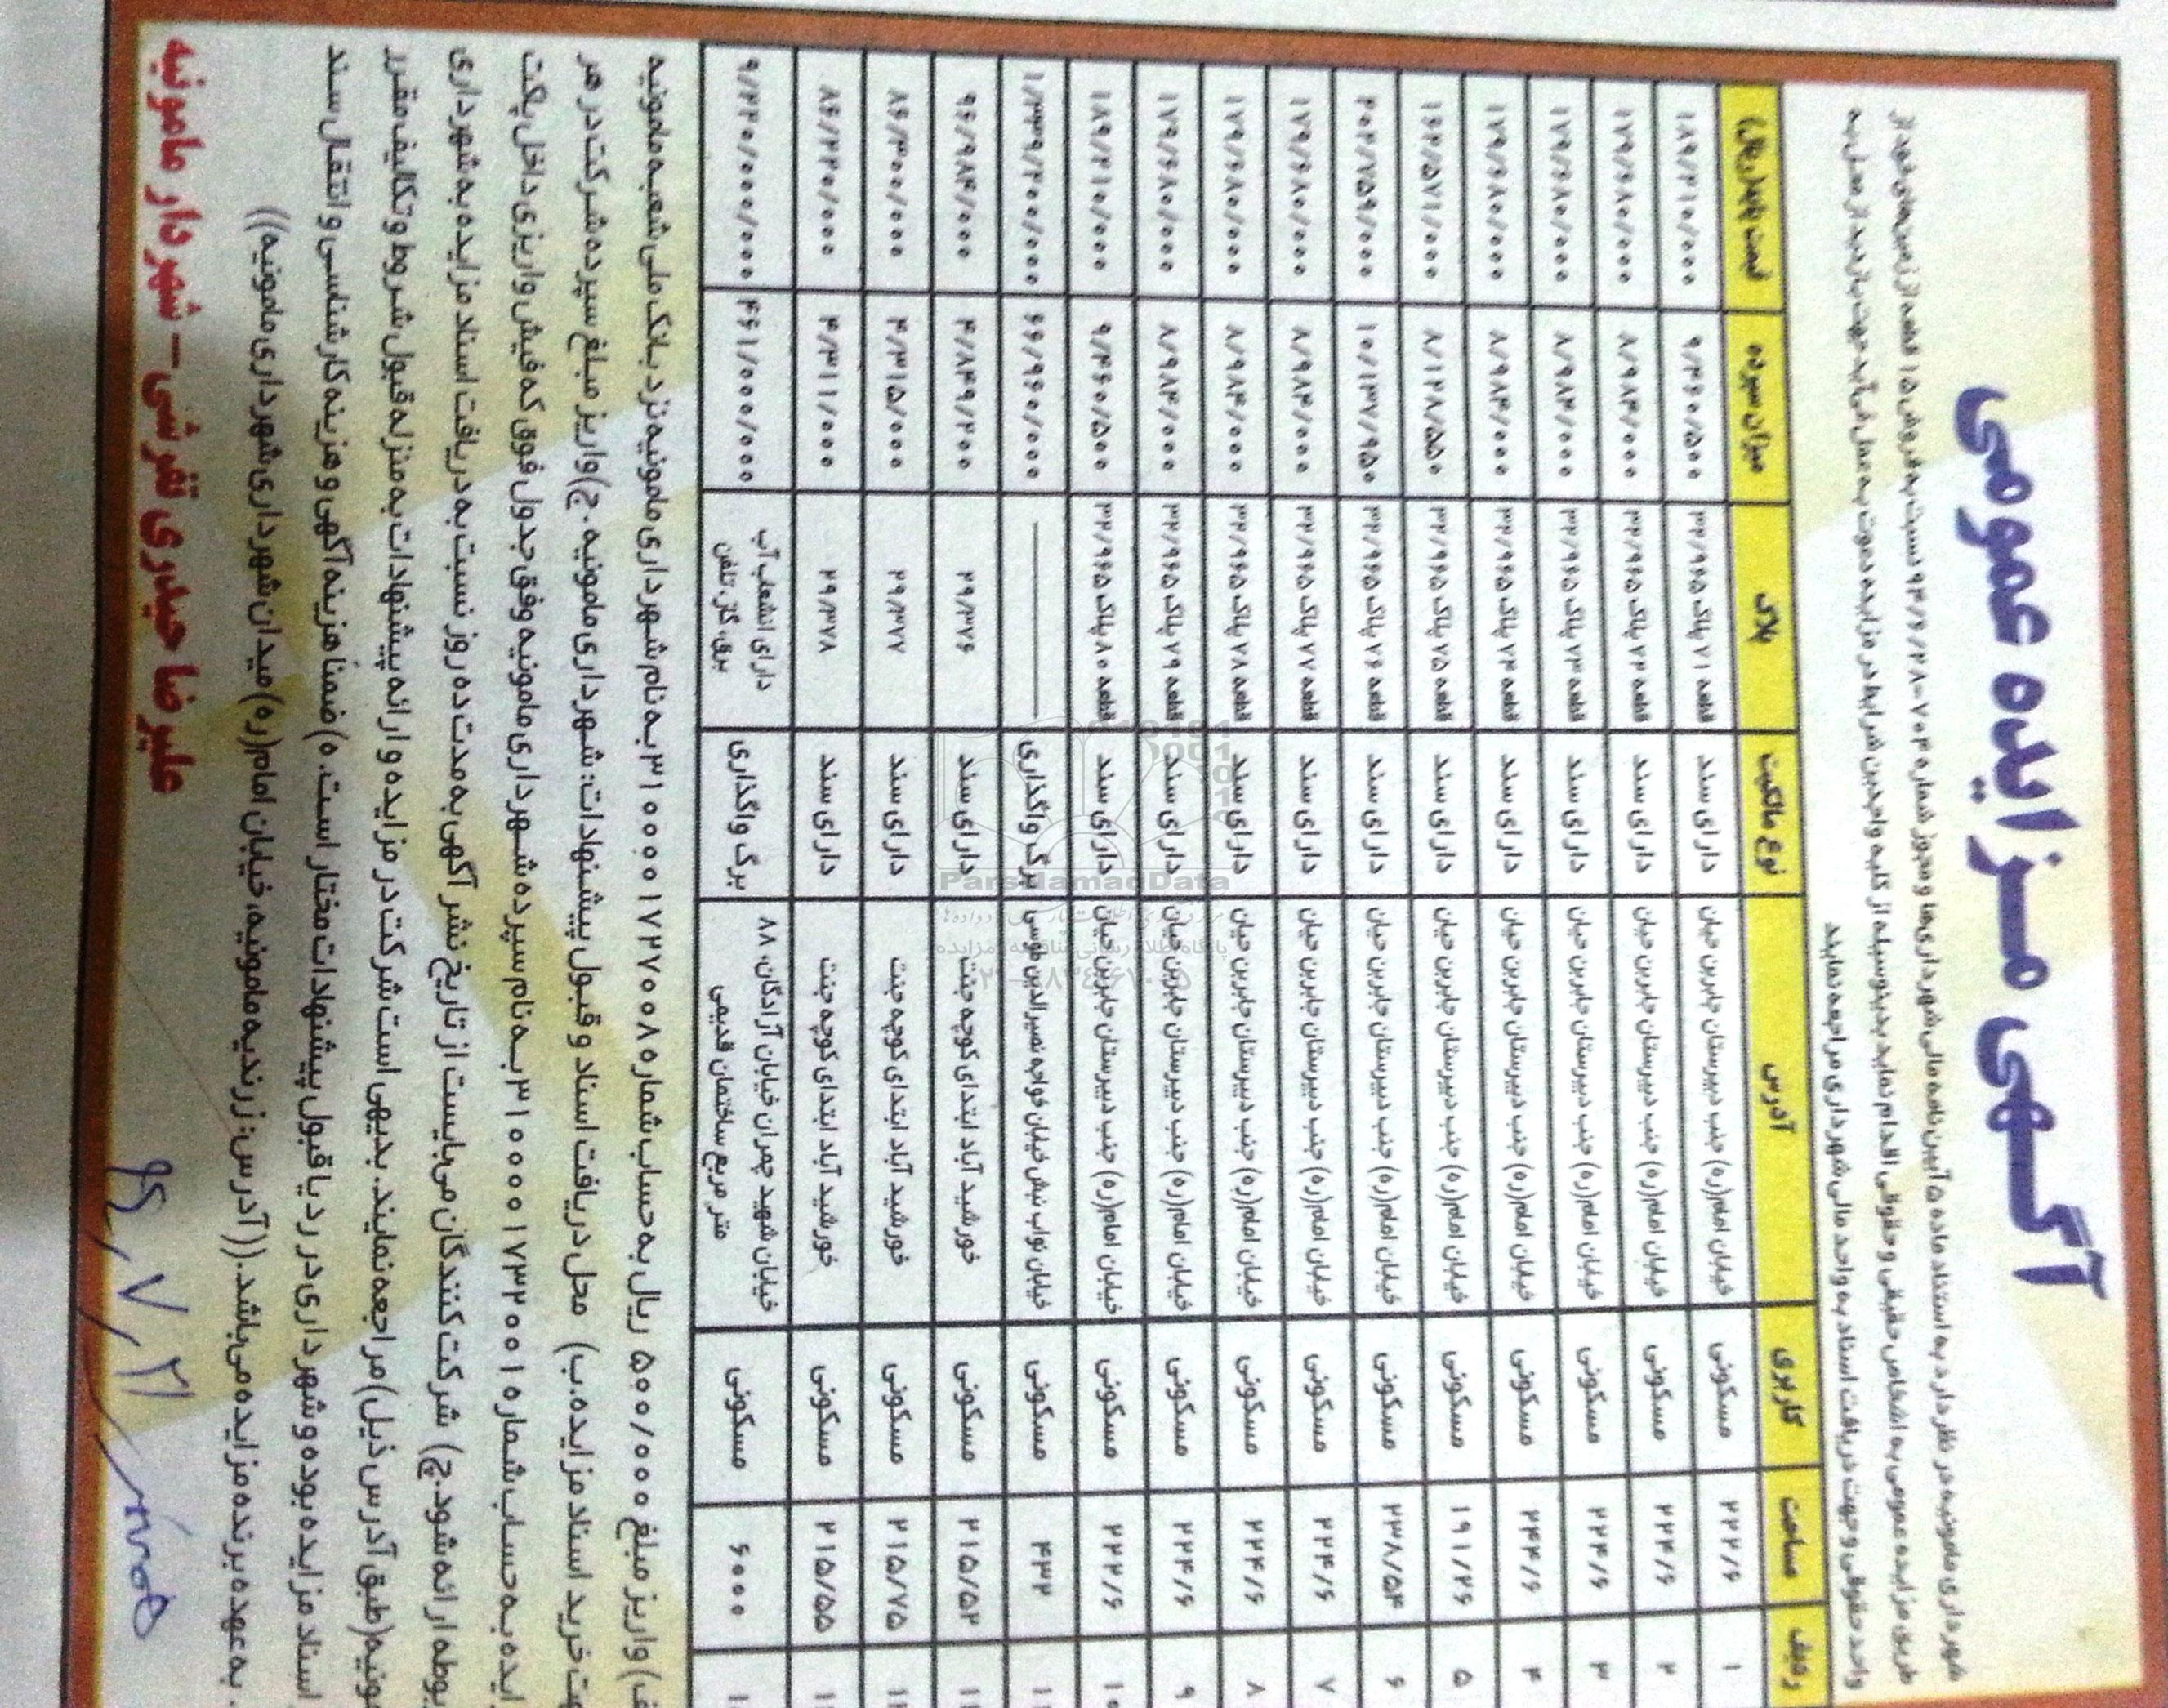 آگهی مزایده عمومی
شهرداری مامونیه در نظر دارد به استناد ماده ۵ آیین نامه مالی شهرداری‌ها و مجوز شماره ۷۰۴-۹۴/۹/۲۸ نسبت به فروش ۱۵ قطعه از زمین‌های خود از
طریق مزایده عمومی به اشخاص حقیقی و حقوقی اقدام نماید بدینوسیله از کلیه واجدین شرایط در مزایده دعوت به عمل می‌آید جهت بازدید از محل به
واحد حقوقی و جهت دریافت اسناد به واحد مالی شهرداری مراجعه نمایند
ردیف مساحت کاربری آدرس نوع مالکیت پلاک میزان سپرده قیمت پایه(ریال)
۱ ۲۲۲/۶ مسکونی خیابان امام(ره) جنب دبیرستان جابربن حیان دارای سند قطعه ۷۱ پلاک ۳۲/۹۶۵ ۹/۴۶۰/۵۰۰ ۱۸۹/۲۱۰/۰۰۰
۲ ۲۲۴/۶ مسکونی خیابان امام(ره) جنب دبیرستان جابربن حیان دارای سند قطعه ۷۲ پلاک ۳۲/۹۶۵ ۸/۹۸۴/۰۰۰ ۱۷۹/۶۸۰/۰۰۰
۳ ۲۲۴/۶ مسکونی خیابان امام(ره) جنب دبیرستان جابربن حیان دارای سند قطعه ۷۳ پلاک ۳۲/۹۶۵ ۸/۹۸۴/۰۰۰ ۱۷۹/۶۸۰/۰۰۰
۴ ۲۲۴/۶ مسکونی خیابان امام(ره) جنب دبیرستان جابربن حیان دارای سند قطعه ۷۴ پلاک ۳۲/۹۶۵ ۸/۹۸۴/۰۰۰ ۱۷۹/۶۸۰/۰۰۰
۵ ۱۹۱/۲۶ مسکونی خیابان امام(ره) جنب دبیرستان جابربن حیان دارای سند قطعه ۷۵ پلاک ۳۲/۹۶۵ ۸/۱۲۸/۵۵۰ ۱۶۲/۵۷۱/۰۰۰
۶ ۲۳۸/۵۴ مسکونی خیابان امام(ره) جنب دبیرستان جابربن حیان دارای سند قطعه ۷۶ پلاک ۳۲/۹۶۵ ۱۰/۱۳۷/۹۵۰ ۲۰۲/۷۵۹/۰۰۰
۷ ۲۲۴/۶ مسکونی خیابان امام(ره) جنب دبیرستان جابربن حیان دارای سند قطعه ۷۷ پلاک ۳۲/۹۶۵ ۸/۹۸۴/۰۰۰ ۱۷۹/۶۸۰/۰۰۰
۸ ۲۲۴/۶ مسکونی خیابان امام(ره) جنب دبیرستان جابربن حیان دارای سند قطعه ۷۸ پلاک ۳۲/۹۶۵ ۸/۹۸۴/۰۰۰ ۱۷۹/۶۸۰/۰۰۰
۹ ۲۲۴/۶ مسکونی خیابان امام(ره) جنب دبیرستان جابربن حیان دارای سند قطعه ۷۹ پلاک ۳۲/۹۶۵ ۸/۹۸۴/۰۰۰ ۱۷۹/۶۸۰/۰۰۰
۱۰ ۲۲۲/۶ مسکونی خیابان امام(ره) جنب دبیرستان جابربن حیان دارای سند قطعه ۸۰ پلاک ۳۲/۹۶۵ ۹/۴۶۰/۵۰۰ ۱۸۹/۲۱۰/۰۰۰
۴۳۲ مسکونی خیابان نواب نبش خیابان خواجه نصیرالدین طوسی برگ واگذاری ۶۶/۹۶۰/۰۰۰ ۱/۳۳۹/۲۰۰/۰۰۰
۲۱۵/۵۲ مسکونی خورشید آباد ابتدای کوچه جنت دارای سند ۲۹/۳۷۶ ۴/۸۴۹/۲۰۰ ۹۶/۹۸۴/۰۰۰
۲۱۵/۷۵ مسکونی خورشید آباد ابتدای کوچه جنت دارای سند ۲۹/۳۷۷ ۴/۳۱۵/۰۰۰ ۸۶/۳۰۰/۰۰۰
۲۱۵/۵۵ مسکونی خورشید آباد ابتدای کوچه جنت دارای سند ۲۹/۳۷۸ ۴/۳۱۱/۰۰۰ ۸۶/۲۲۰/۰۰۰
۶۰۰۰ مسکونی خیابان شهید چمران خیابان آزادگان، ۸۸ متر مربع ساختمان قدیمی برگ واگذاری دارای انشعاب آب برق، گاز، تلفن ۴۶۱/۰۰۰/۰۰۰ ۹/۲۲۰/۰۰۰/۰۰۰
ف) واریز مبلغ ۵۰۰/۰۰۰ ریال به حساب شماره ۳۱۰۰۰۰۱۷۲۷۰۰۸ به نام شهرداری مامونیه نزد بانک ملی شعبه مامونیه
خرید اسناد مزایده. ب) محل دریافت اسناد و قبول پیشنهادات: شهرداری مامونیه. ج) واریز مبلغ سپرده شرکت در هر
به حساب شماره ۳۱۰۰۰۰۱۷۳۲۰۰۱ به نام سپرده شهرداری مامونیه وفق جدول فوق که فیش واریزی داخل پاکت
ارائه شود. چ) شرکت کنندگان می‌بایست از تاریخ نشر آگهی به مدت ده روز نسبت به دریافت اسناد مزایده به شهرداری
(طبق آدرس ذیل) مراجعه نمایند. بدیهی است شرکت در مزایده و ارائه پیشنهادات به منزله قبول شروط و تکالیف مقرر
اسناد مزایده بوده و شهرداری در رد یا قبول پیشنهادات مختار است. ه) ضمناً هزینه آگهی و هزینه کارشناسی و انتقال سند
به عهده برنده مزایده می‌باشد. ((آدرس: زرندیه مامونیه، خیابان امام(ره) میدان شهرداری شهرداری مامونیه))
علیرضا حیدری تفرشی - شهردار مامونیه
۹۵/۷/۲۱
ParsNamadData